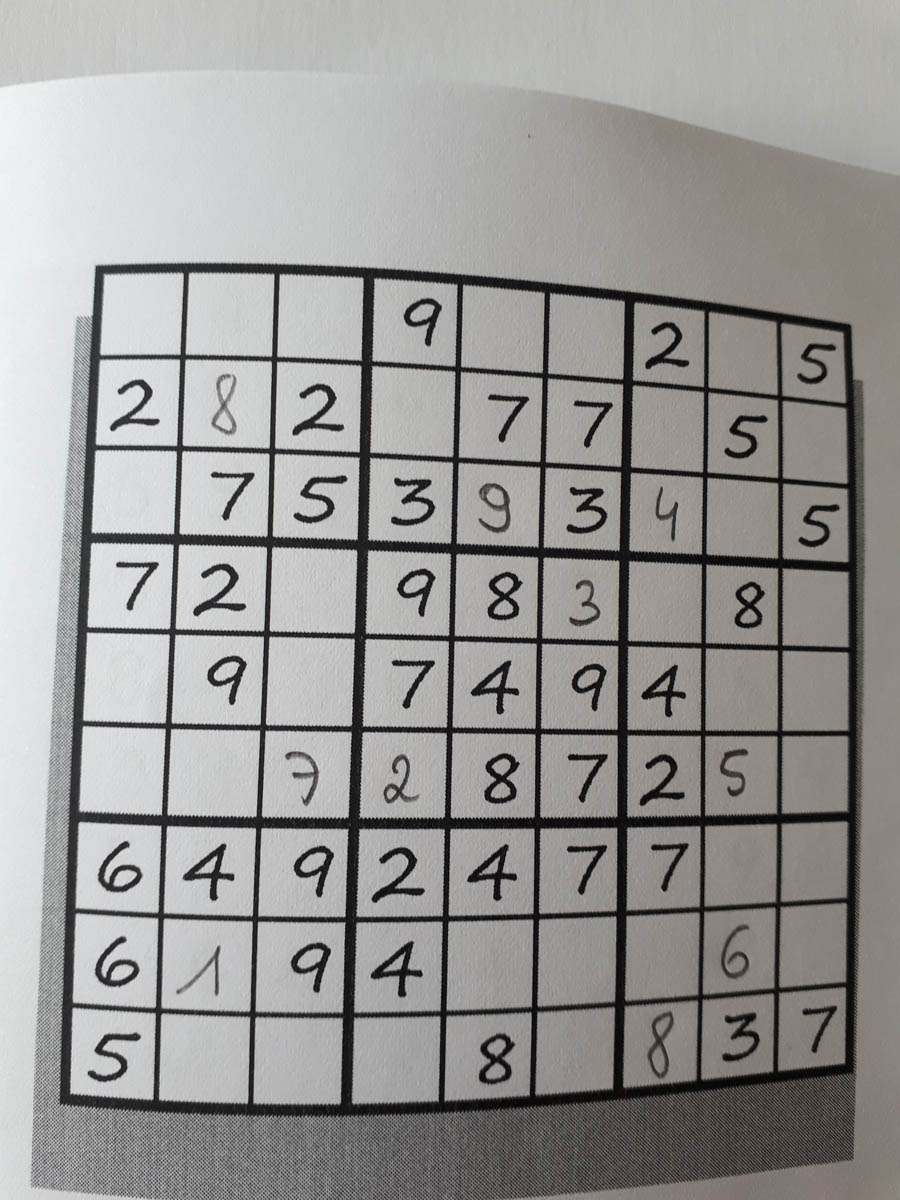 9 2 5
2 8 2 7 7 5
7 5 3 9 3 4 5
7 2 9 8 3 8
9 7 4 9 4
7 2 8 7 2 5
6 4 9 2 4 7 7
6 1 9 4 6
5 8 8 3 7